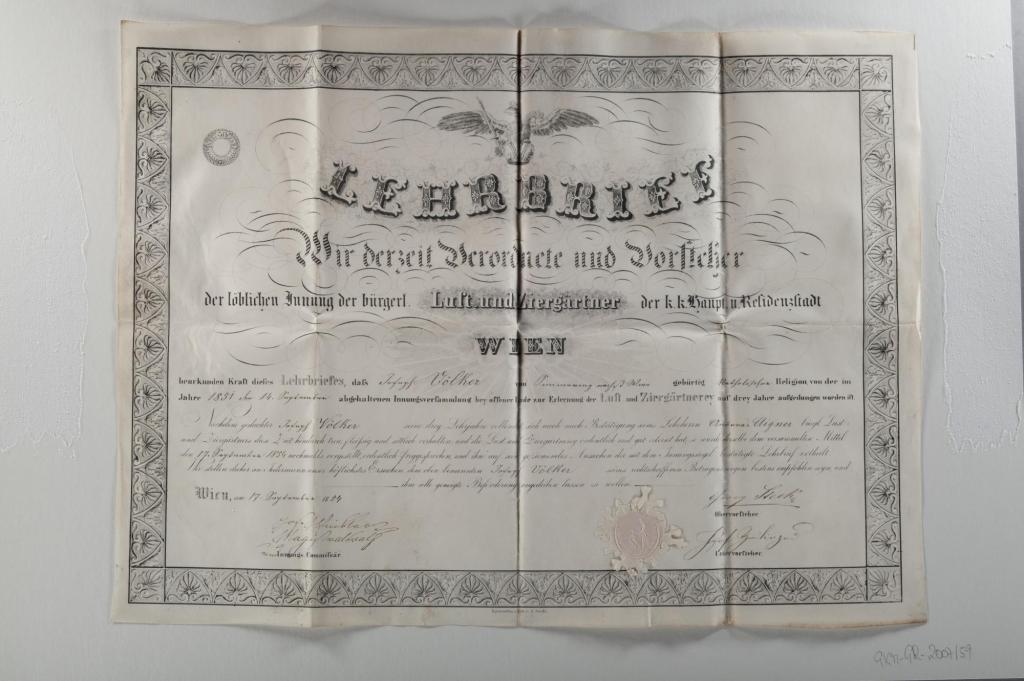 LEHRBRIEF
Wir derzeit Verordnete und Vorsteher
der löblichen Innung der bürgerl. Luft und Ziergärtner der k.k. Haupt u Residenzstadt
WIEN
beurkunden Kraft dieses Lehrbriefes, daß Joseph Völker von Simmering nächst Wien gebürtig Katholischer Religion, von der im
Jahre 1851 den 14. September abgehaltenen Innungsversammlung bey offener Lade zur Erlernung der Luft und Ziergärtnerey auf drey Jahre aufgedungen worden ist
Nachdem gedachter Joseph Völker seine drey Lehrjahre vollendet sich auch nach Bestätigung seines Lehrherrn Aigner bürgl Lust-
und Ziergärtners diese Zeit hindurch treu, fleißig und sittlich verhalten, und die Lust und Ziergärtnerey ordentlich und gut erlernt hat, so wurde derselbe dem versammelten Mittel
den 17. September 1854 nochmahls vorgestellt, ordentlich freygesprochen, und ihm auf sein geziemendes Ansuchen der mit dem Innungssiegel bestätigte Lehrbrief ertheilt
Wir stellen daher an jedermann unser höflichstes Ersuchen, den oben benannten Joseph Völker seines rechtschaffenen Betragens wegen bestens empfohlen seyn und
ihm alle geneigte Beförderung angedeihen lassen zu wollen
Wien, am 17 September 1854
Georg
Obervorsteher
Innungs Commissär
Untervorsteher
GKM-GR-2007/59